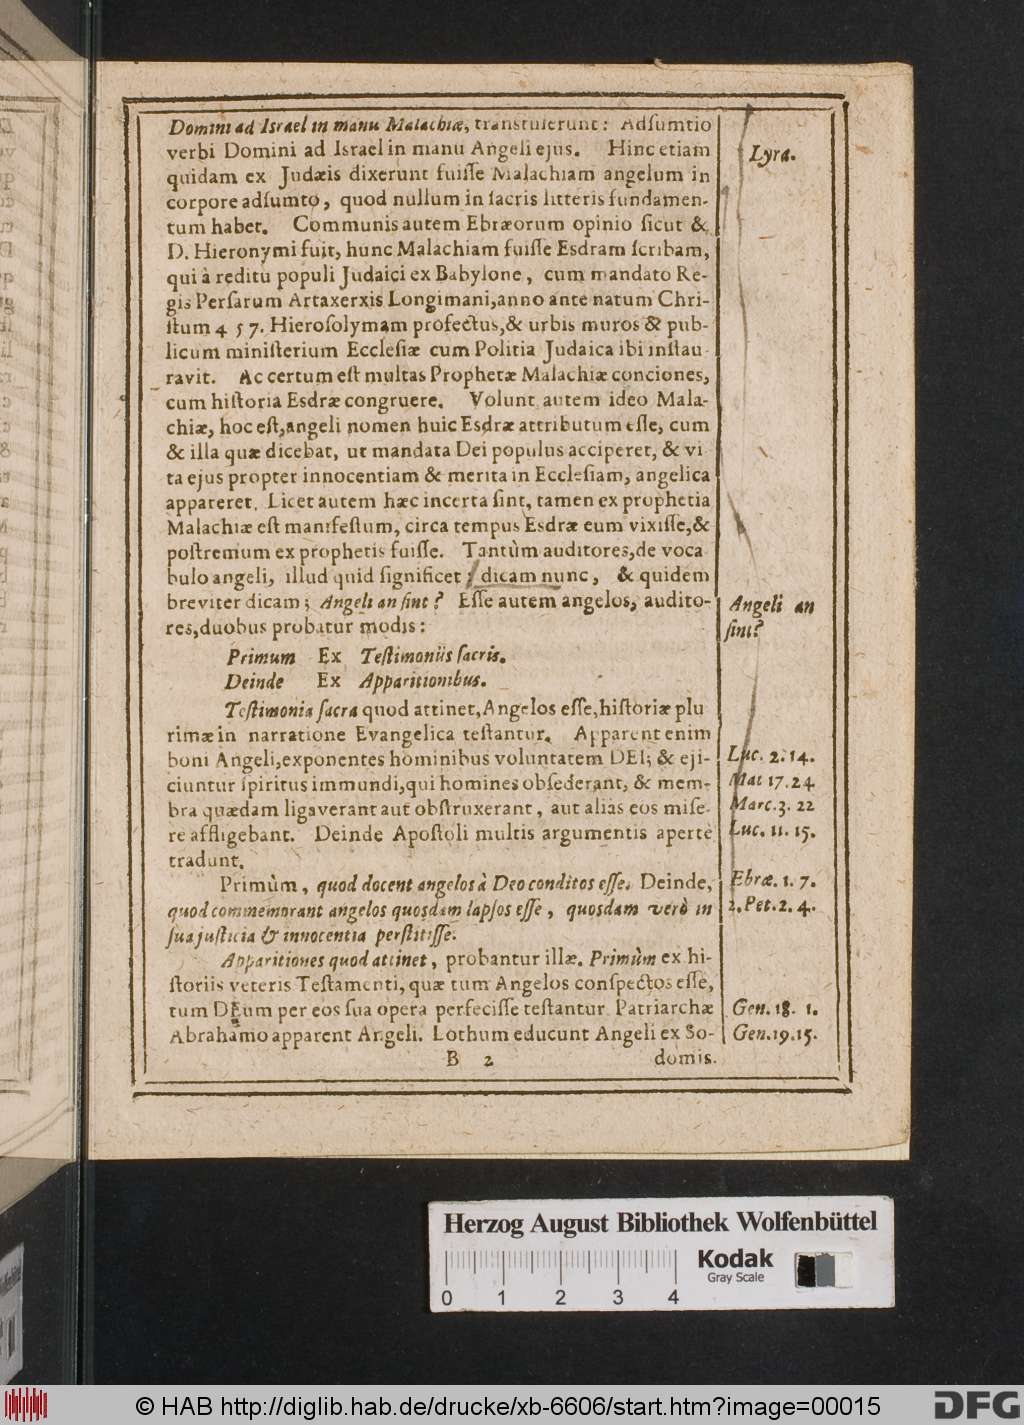 Domini ad Israel in manu Malachiæ, transtulerunt: Adsumtio
verbi Domini ad Israel in manu Angeli ejus. Hinc etiam
Lyra.
quidam ex Judæis dixerunt fuiſſe Malachiam angelum in
corpore adſumto, quod nullum in ſacris litteris fundamen-
tum habet. Communis autem Ebræorum opinio ſicut &
D. Hieronymi fuit, hunc Malachiam fuiſſe Esdram ſcribam,
qui à reditu populi Judaici ex Babylone, cum mandato Re-
gis Perſarum Artaxerxis Longimani, anno ante natum Chri-
ſtum 457. Hieroſolymam profectus, & urbis muros & pub-
licum miniſterium Eccleſiæ cum Politia Judaica ibi inſtau-
ravit. Ac certum eſt multas Prophetæ Malachiæ conciones,
cum hiſtoria Esdræ congruere. Volunt autem ideo Mala-
chiæ, hoc eſt, angeli nomen huic Esdræ attributum eſſe, cum
& illa quæ dicebat, ut mandata Dei populus acciperet, & vi
ta ejus propter innocentiam & merita in Eccleſiam, angelica
appareret. Licet autem hæc incerta ſint, tamen ex prophetia
Malachiæ eſt manifeſtum, circa tempus Esdræ eum vixiſſe, &
poſtremum ex prophetis fuiſſe. Tantùm auditores, de voca
bulo angeli, illud quid ſignificet; dicam nunc, & quidem
breviter dicam; Angeli an ſint? Eſſe autem angelos, audito-
Angeli an
res, duobus probatur modis:
ſint?
Primum Ex Teſtimoniis ſacris.
Deinde Ex Apparitionibus.
Teſtimonia ſacra quod attinet, Angelos eſſe, hiſtoriæ plu
rimæ in narratione Evangelica teſtantur. Apparent enim
boni Angeli, exponentes hominibus voluntatem DEI; & eji-
Luc. 2. 14.
ciuntur ſpiritus immundi, qui homines obſederant, & mem-
Mat 17. 24
bra quædam ligaverant aut obſtruxerant, aut aliàs eos miſe-
Marc. 3. 22
re affligebant. Deinde Apoſtoli multis argumentis apertè
Luc. 11. 15.
tradunt.
Primùm, quod docent angelos à Deo conditos eſſe. Deinde,
Ebræ. 1. 7.
quod commemorant angelos quosdam lapſos eſſe, quosdam verò in
2. Pet. 2. 4.
ſua juſticia & innocentia perſtitiſſe.
Apparitiones quod attinet, probantur illæ. Primùm ex hi-
ſtoriis veteris Teſtamenti, quæ tum Angelos conſpectos eſſe,
tum DEum per eos ſua opera perfeciſſe teſtantur. Patriarchæ
Gen. 18. 1.
Abrahamo apparent Angeli. Lothum educunt Angeli ex So-
Gen. 19. 15.
B 2 domis.
Herzog August Bibliothek Wolfenbüttel
0 1 2 3 4
Kodak
Gray Scale
© HAB http://diglib.hab.de/drucke/xb-6606/start.htm?image=00015
DFG